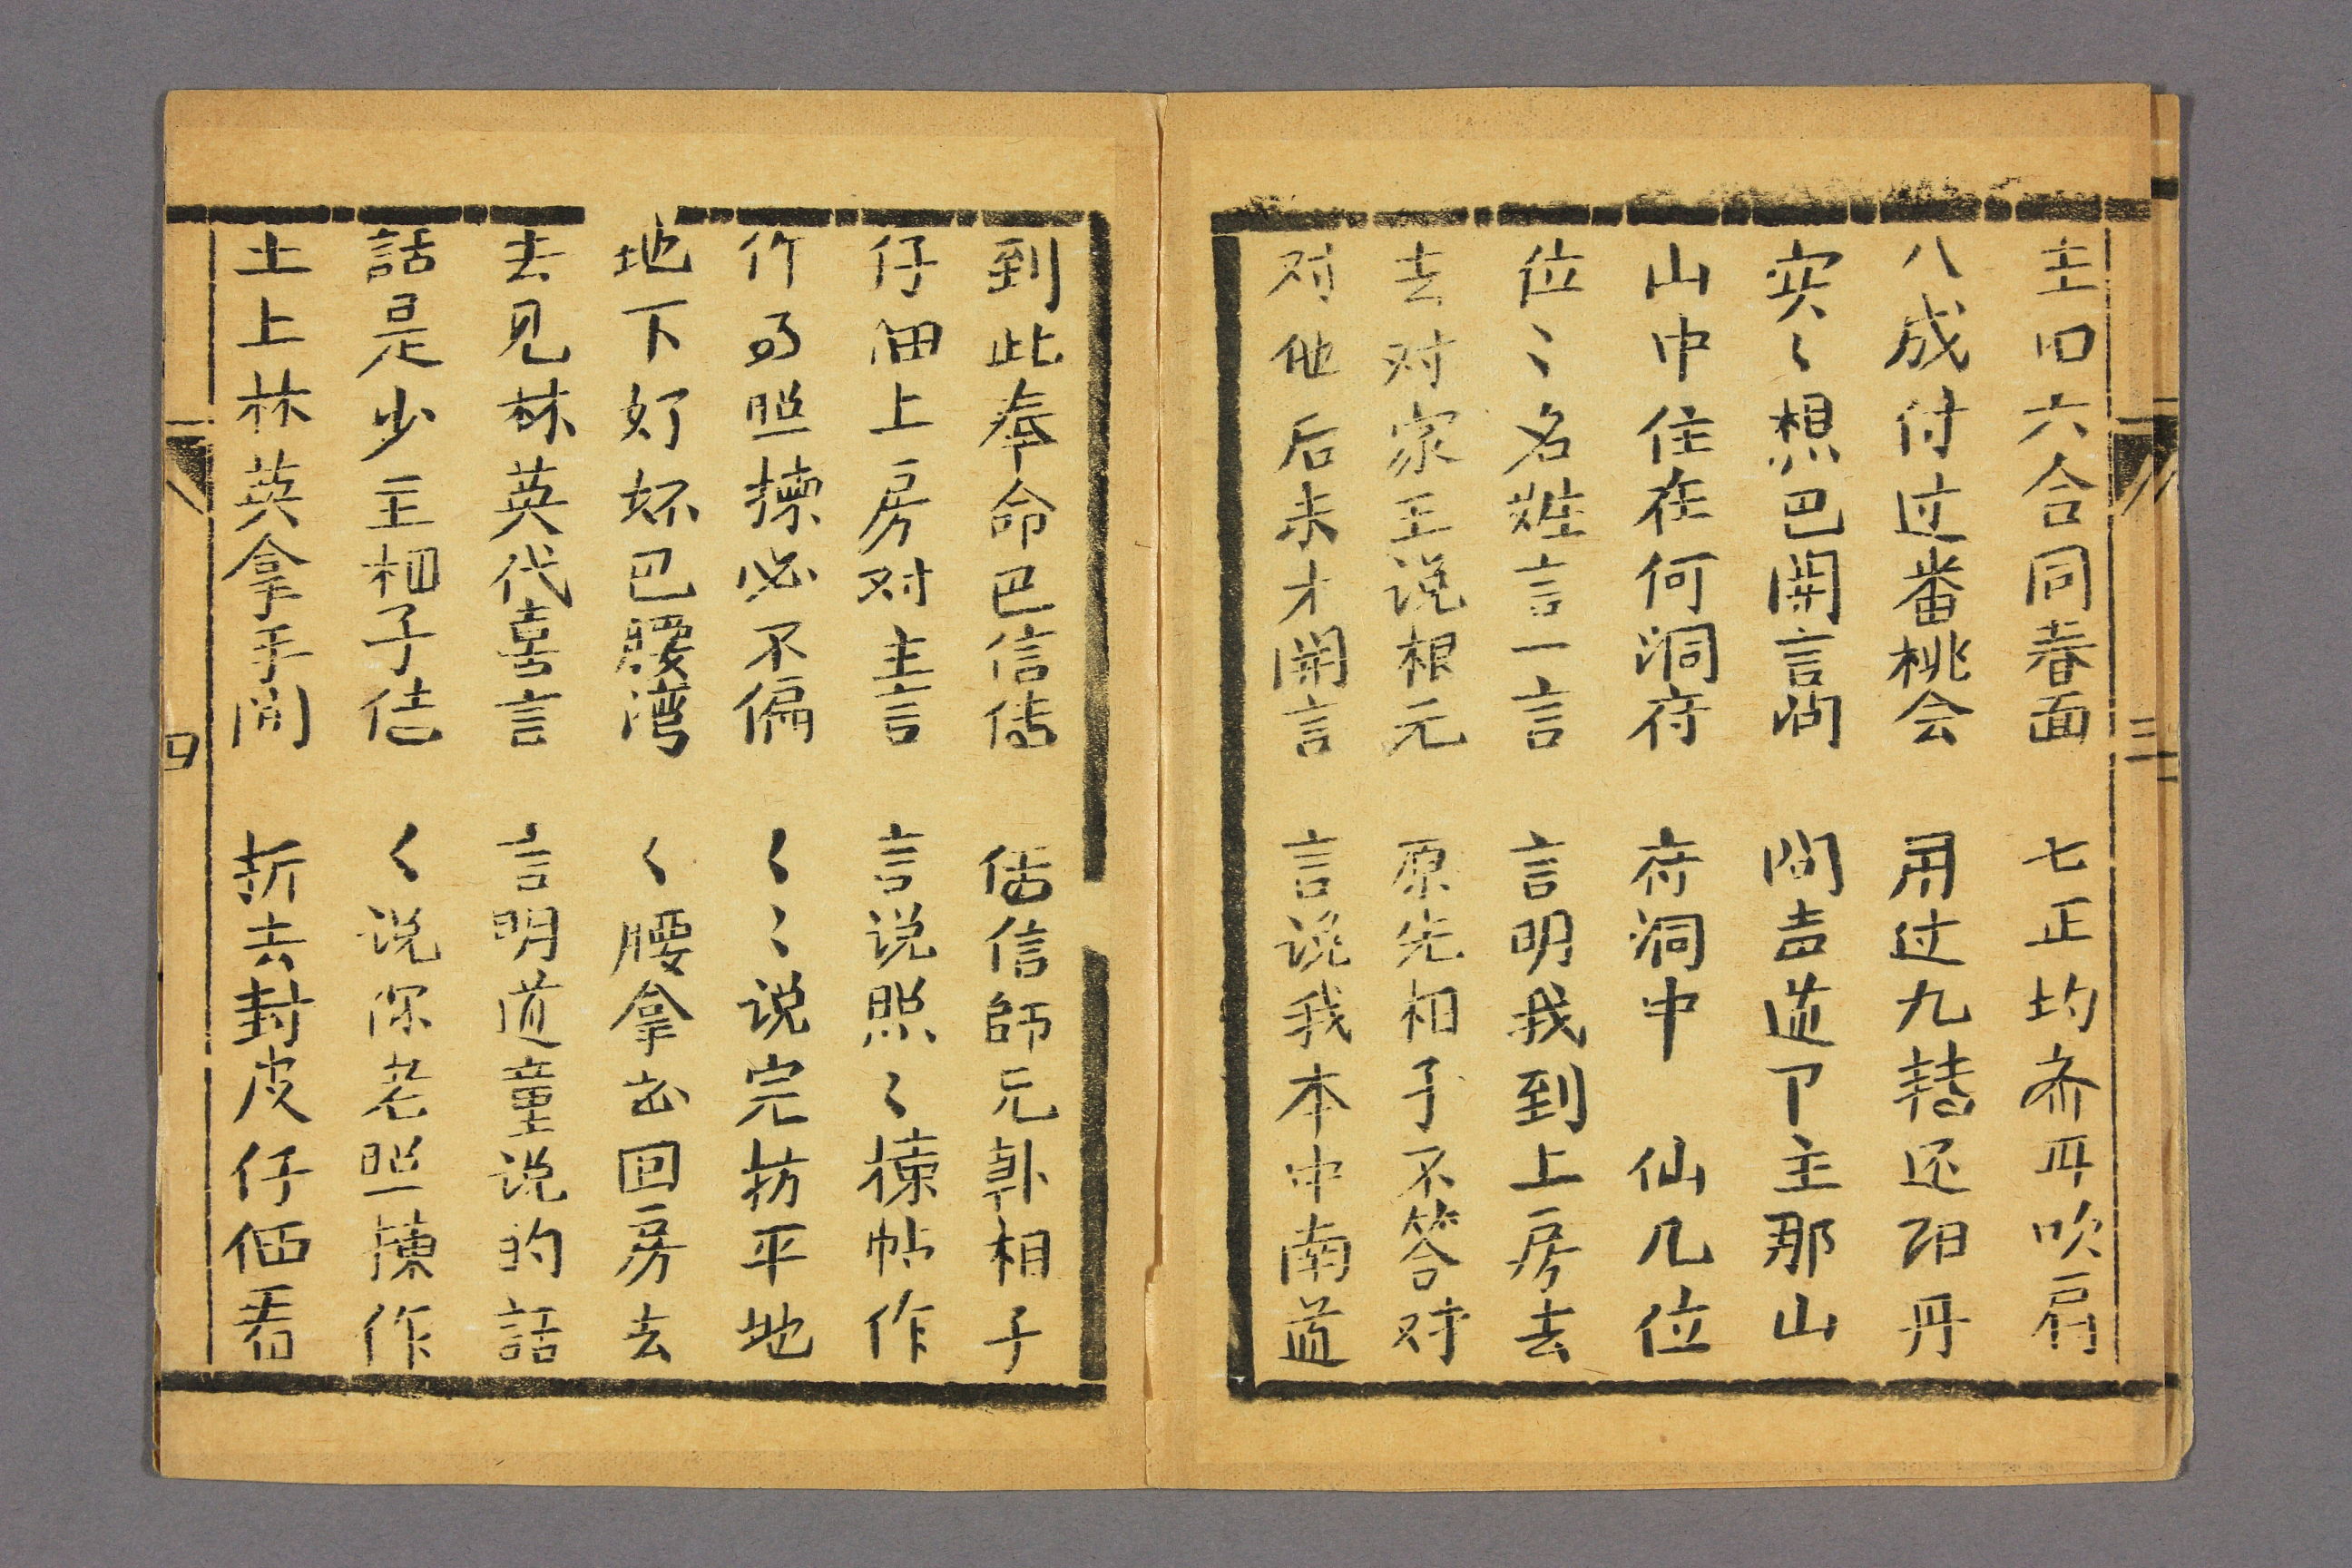 主四六合同春面　七正均斉耳吹肩
八成付过番桃会　用过九轉还阳丹
实〻想巴開言问　问声道下主那山
山中住在何洞府　府洞中　仙几位
位〻名难言一言　言明我到上房去
去对家主说根元　原先相子不答对
对他后来才開言　言说我本中南道
三
到此奉命巴信　信師元韩相子
仔细上房对主言　言说照〻揀帖作
作的照揀必不偏　〻〻说完扮平地
地下好妚巴腰湾　〻腰拿起回房去
去见林英代喜言　言明道童说的話
話是少主相子佶　〻说你老照揀作
土上林英拿手间　折去封皮仔细看
四